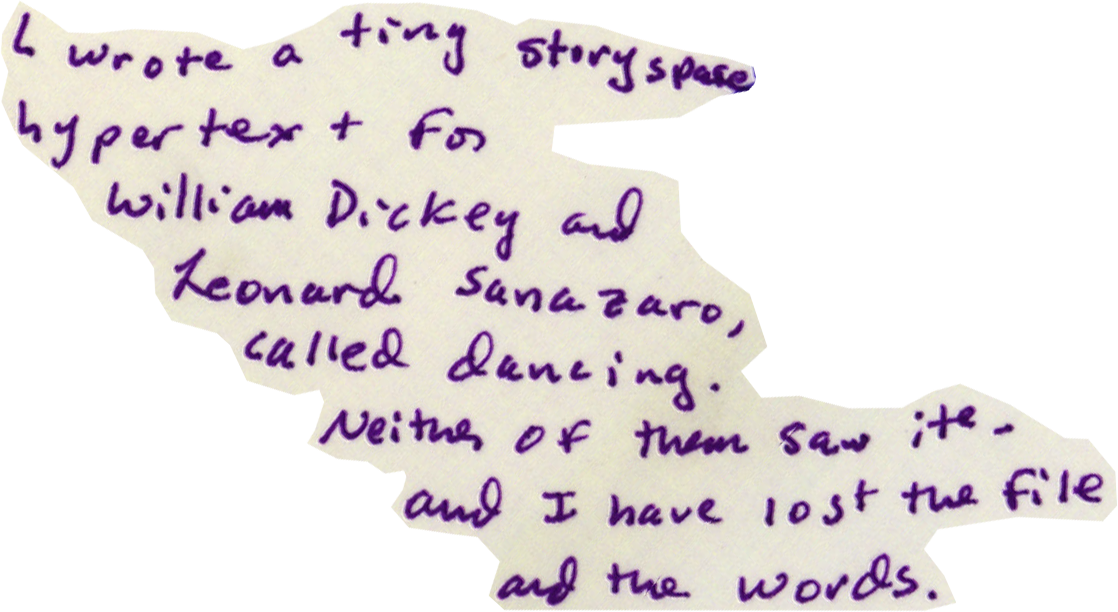 I wrote a tiny storyspace
hypertext for
William Dickey and
Leonard Sanazaro,
called dancing.
Neither of them saw ite-
and I have lost the file
and the words.